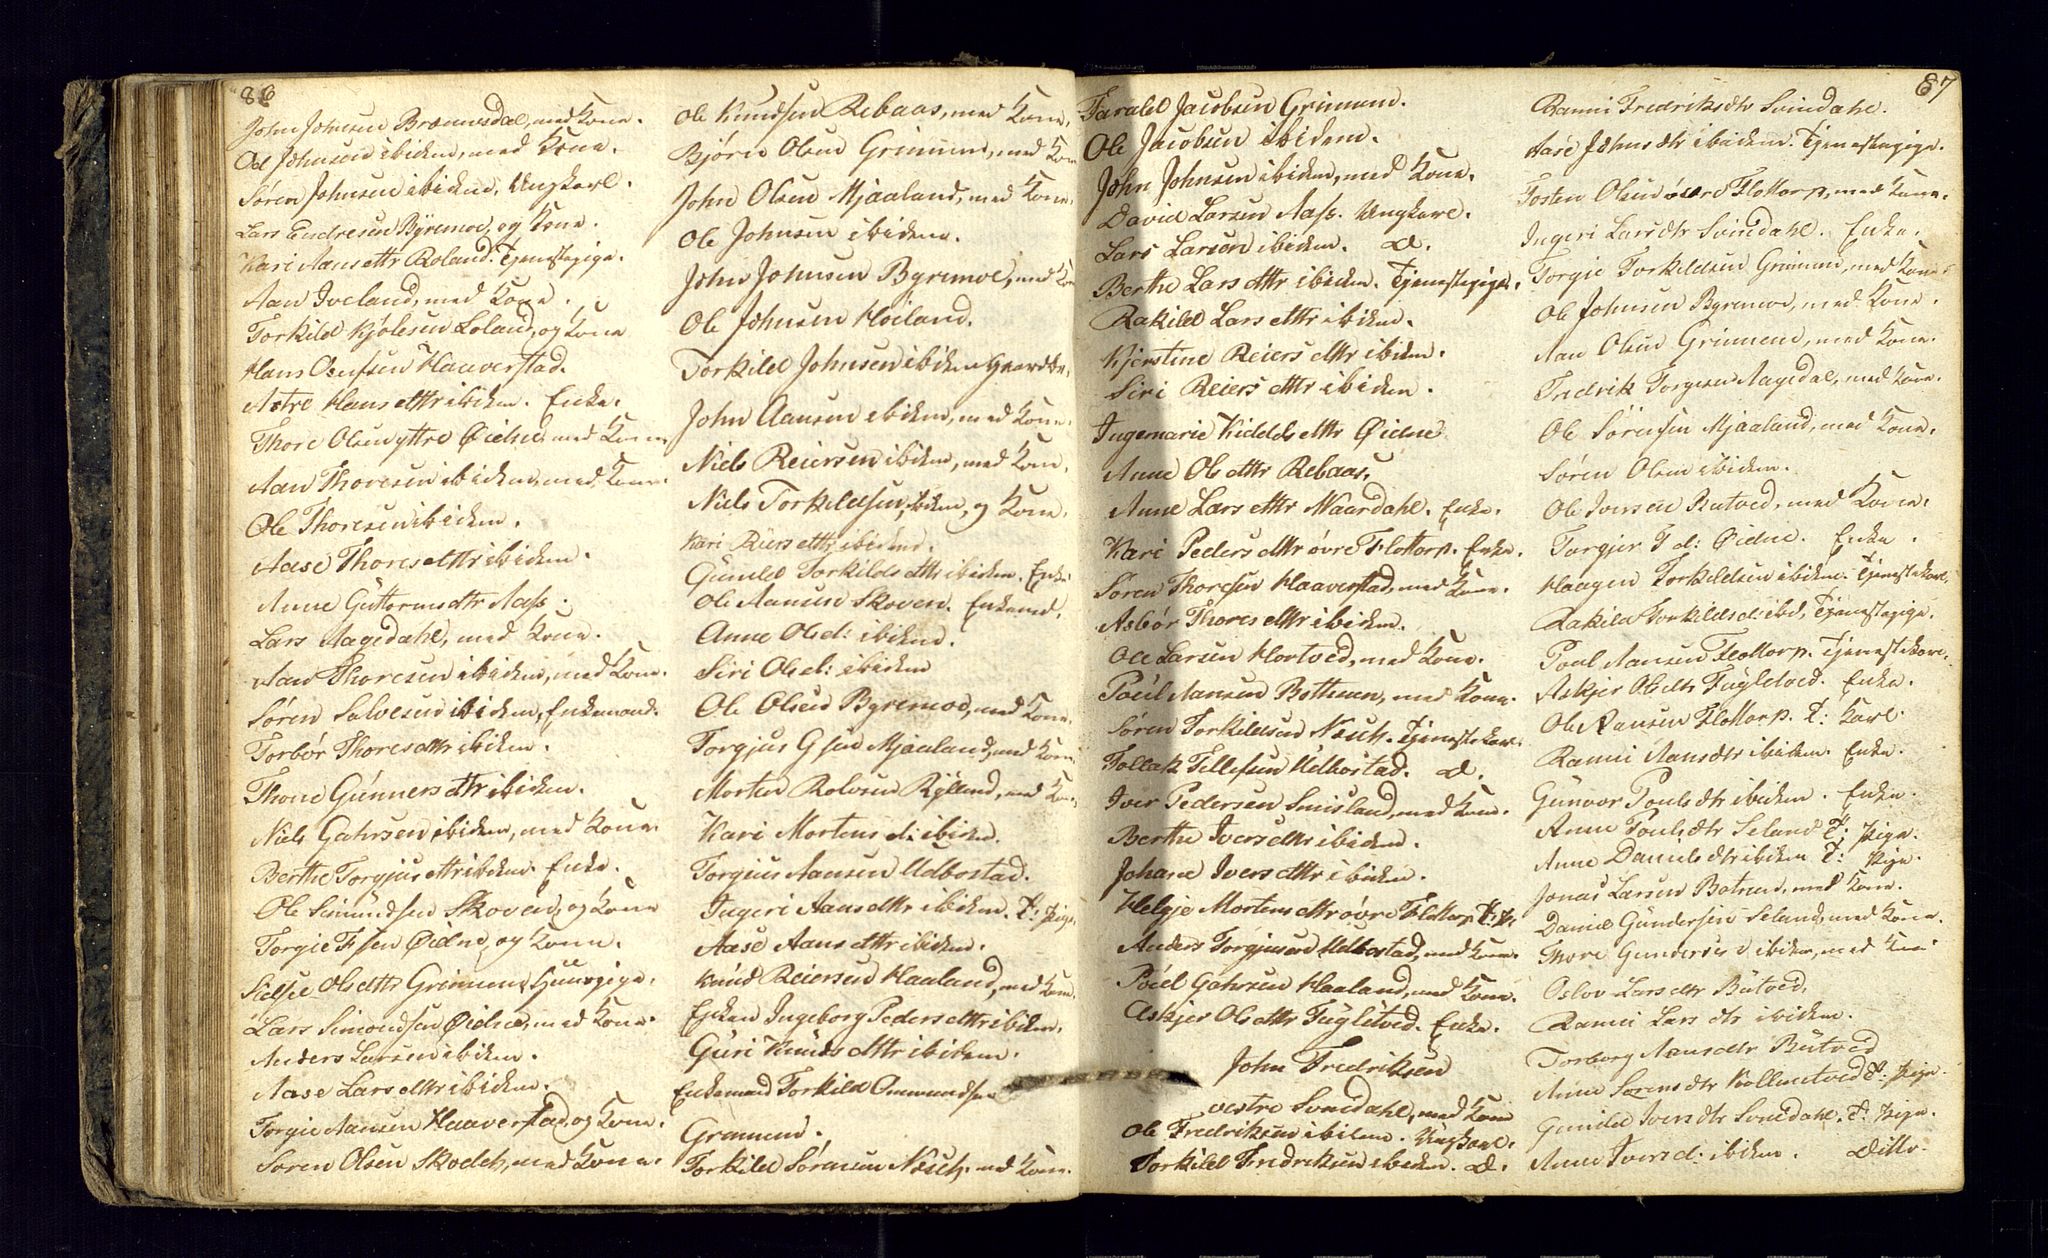 86
John Johnsen Brænnesdal, med Kone.
Ol Johnsen ibidem, med Kone.
Søren Johnsen ibidem, Ungkarl.
Lars Endresen Byremoe, og Kone.
Kari Aansdttr Roland. Tjenestepige.
Aan Iveland, med Kone.
Torkild Kjølesen Loland, og Kone
Hans Olufsen Haaverstad.
Astre Hansdttr ibidem. Enke.
Thore Olsen yttre Øidne, med Kone
Aan Thoresen ibidem, med Kone.
Ole Thoresen ibidem.
Aase Thoresdttr ibidem.
Anne Guttormsdtr Aass.
Lars Aagedahl, med Kone.
Aan Thoresen ibidem, med Kone.
Søren Salvesen ibidem, Enkemand.
Torbør Thoresdttr ibidem.
Thone Gunnersdtr ibidem.
Niels Gahrsen ibidem, med Kone.
Berthe Torgjusdttr ibidem. Enke.
Ole Simundsen Skoven, og Kone
Torgie T sen Øidne, og Kone.
Sidsel Olsdttr Grimmen, Huuspige.
Lars Simondsen Øidne, med Kone.
Anders Larsen ibidem.
Aase Larsdttr ibidem.
Torgie Aansen Haaverstad, og Kone.
Søren Olsen Skoelch, med Kone.
Ole Knudsen Rebaas, med Kone,
Bjørn Olsen Grimmen, med Kone
John Olsen Mjaaland, med Kone.
Ole Johnsen ibidem.
John Johnsen Byremoe, med Kone
Ole Johnsen Høiland.
Torkild Johnsen ibidem
John Aansen ibidem, med Kone.
Niels Reiersen ibidem, med Kone.
Niels Torkildsen, ibidem, og Kone.
Kari Reiersdttr ibidem.
Gunild Torkildsdttr ibidem. Enke
Ole Aansen Skoven. Enkemd.
Anne Olsd: ibidem.
Siri Olsd: ibidem
Ole Olsen Byremoe, med Kone.
Torgjus G sen Mjaaland, med Kone.
Morten Rolvsen Rylland, med Kone,
Kari Mortensd: ibidem.
Torgius Aansen Udbostad.
Ingeri Aansdttr ibidem. T: pige.
Aase Aansdttr ibidem.
Knud Reiersen Haaland, med Kone.
Enken Ingeborg Pedersdttr ibidem.
Guri Knudsdttr ibidem.
Enkemand Torkild Ommundsen
Grimmen.
Torkild Sørensen Næsch, med Kone.
Tarald Jacobsen Grimmen.
Ole Jacobsen ibidem.
John Johnsen ibidem, med Kone.
David Larsen Aass. Ungkarl.
Lars Larsen ibidem. D.
Berthe Larsdttr ibidem. Tjenestepige.
Rakild Larsdttr ibidem.
Kjerstine Reiersdttr ibidem.
Siri Reiersdttr ibidem.
Ingemarie Kieldsdttr Øidne.
Anne Olsdttr Rebaas.
Anne Larsdttr Maardahl. Enke.
Kari Pedersdttr øvre Flottorp. Enke.
Søren Thoresen Haaverstad, med Kone.
Asbør Thoresdttr ibidem.
Ole Larsen Hortved, med Kone.
Poul Aansen Bothenen, med Kone.
Søren Torkildsen Næsch. Tjenestekarl.
Follak Tellefsen Udbostad. D.
Iver Pedersen Smisland, med Kone.
Berthe Iversdttr ibidem.
Johane Iversdttr ibidem.
Helgje Mortensdttr øvre Flottorp T: P:
Anders Torgjusen Udbostad, med Kone.
Poul Gahrsen Haaland, med Kone.
Askjer Olsdttr Fugletved. Enke.
John Fredriksen
vestre Svindahl, med Kone
Ole Fredriksen ibidem. Ungkarl.
Torkild Fredriksen ibidem. D.
87
Ranni Fredriksdtr Svindahl.
Aase Johnsdtr ibidem. Tjenestepige.
Tosten Olsen øvre Flottorp, med Kone.
Ingeri Larsdtr Svindahl. Enke.
Torgie Torkildsen Grimmen, med Kone
Ole Johnsen Byremoe, med Kone.
Aan Olsen Grimmen, med Kone.
Fredrik Torgiesen Aagedal, med Kone.
Ole Sørensen Mjaaland, med Kone.
Søren Olsen ibidem.
Ole Iversen Rutved, med Kone.
Torgjer T d: Øidne. Enke.
Haagen Torkildsen ibidem. Tjenestekarl,
Rakild Torkildsd: ibid, Tjenestepige.
Poul Aansen Flottorp. Tjenestekarl.
Askjer Olsdtr Fugletved. Enke.
Ole Aansen Flottorp. T: Karl.
Ranni Aansdtr ibidem. Enke.
Gunvor Poulsdtr ibidem. Enke.
Anne Poulsdtr Seland T: Pige.
Anne Danielsdtr ibidem T: Pige.
Jonas Larsen Botnen, med Kone.
Daniel Gundersen Seland, med Kone.
Thore Gundersen ibidem, med Kone
Oslov Larsdtr Butved.
Ranni Larsdtr ibidem.
Torborg Aansdtr Butved
Anne Sorensdtr Kollmetved T: Pige.
Gunild Iversdtr Svindahl. T: Pige.
Anne Iversd: ibidem. Ditto.